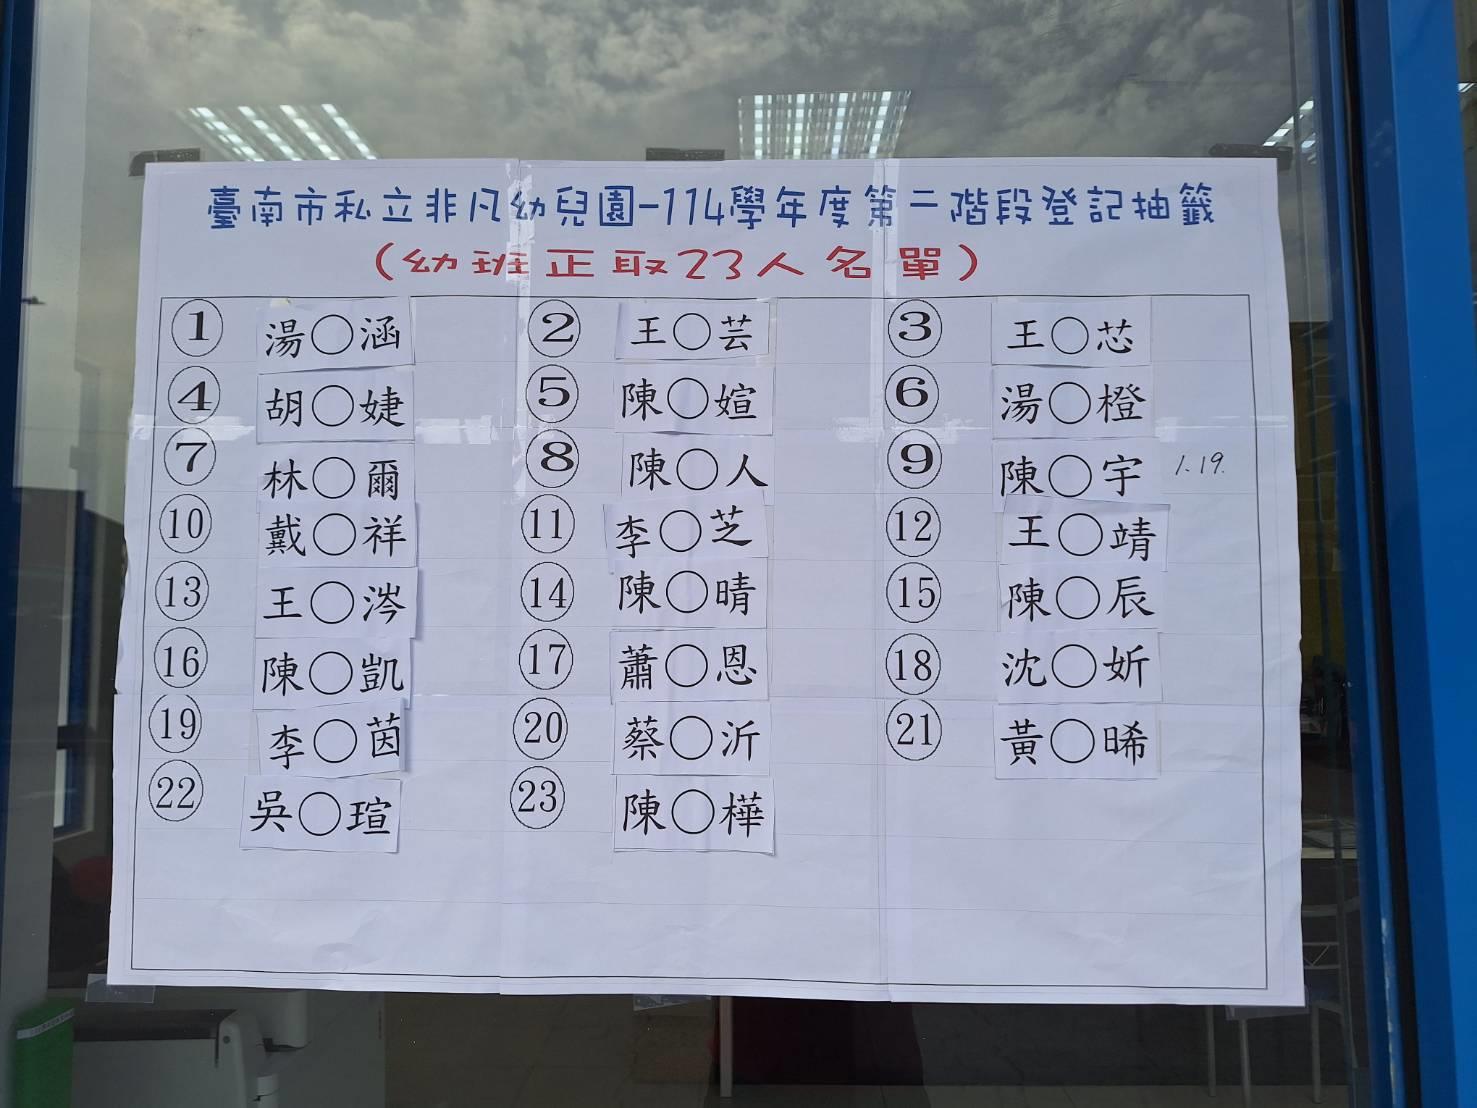 臺南市私立非凡幼兒園-114學年度第二階段登記抽籤
(幼班正取23人名單)
① 湯○涵 ② 王○芸 ③ 王○芯
④ 胡○婕 ⑤ 陳○媗 ⑥ 湯○橙
⑦ 林○爾 ⑧ 陳○人 ⑨ 陳○宇 1.19.
⑩ 戴○祥 ⑪ 李○芝 ⑫ 王○靖
⑬ 王○涔 ⑭ 陳○晴 ⑮ 陳○辰
⑯ 陳○凱 ⑰ 蕭○恩 ⑱ 沈○妡
⑲ 李○茵 ⑳ 蔡○沂 ㉑ 黃○晞
㉒ 吳○瑄 ㉓ 陳○樺